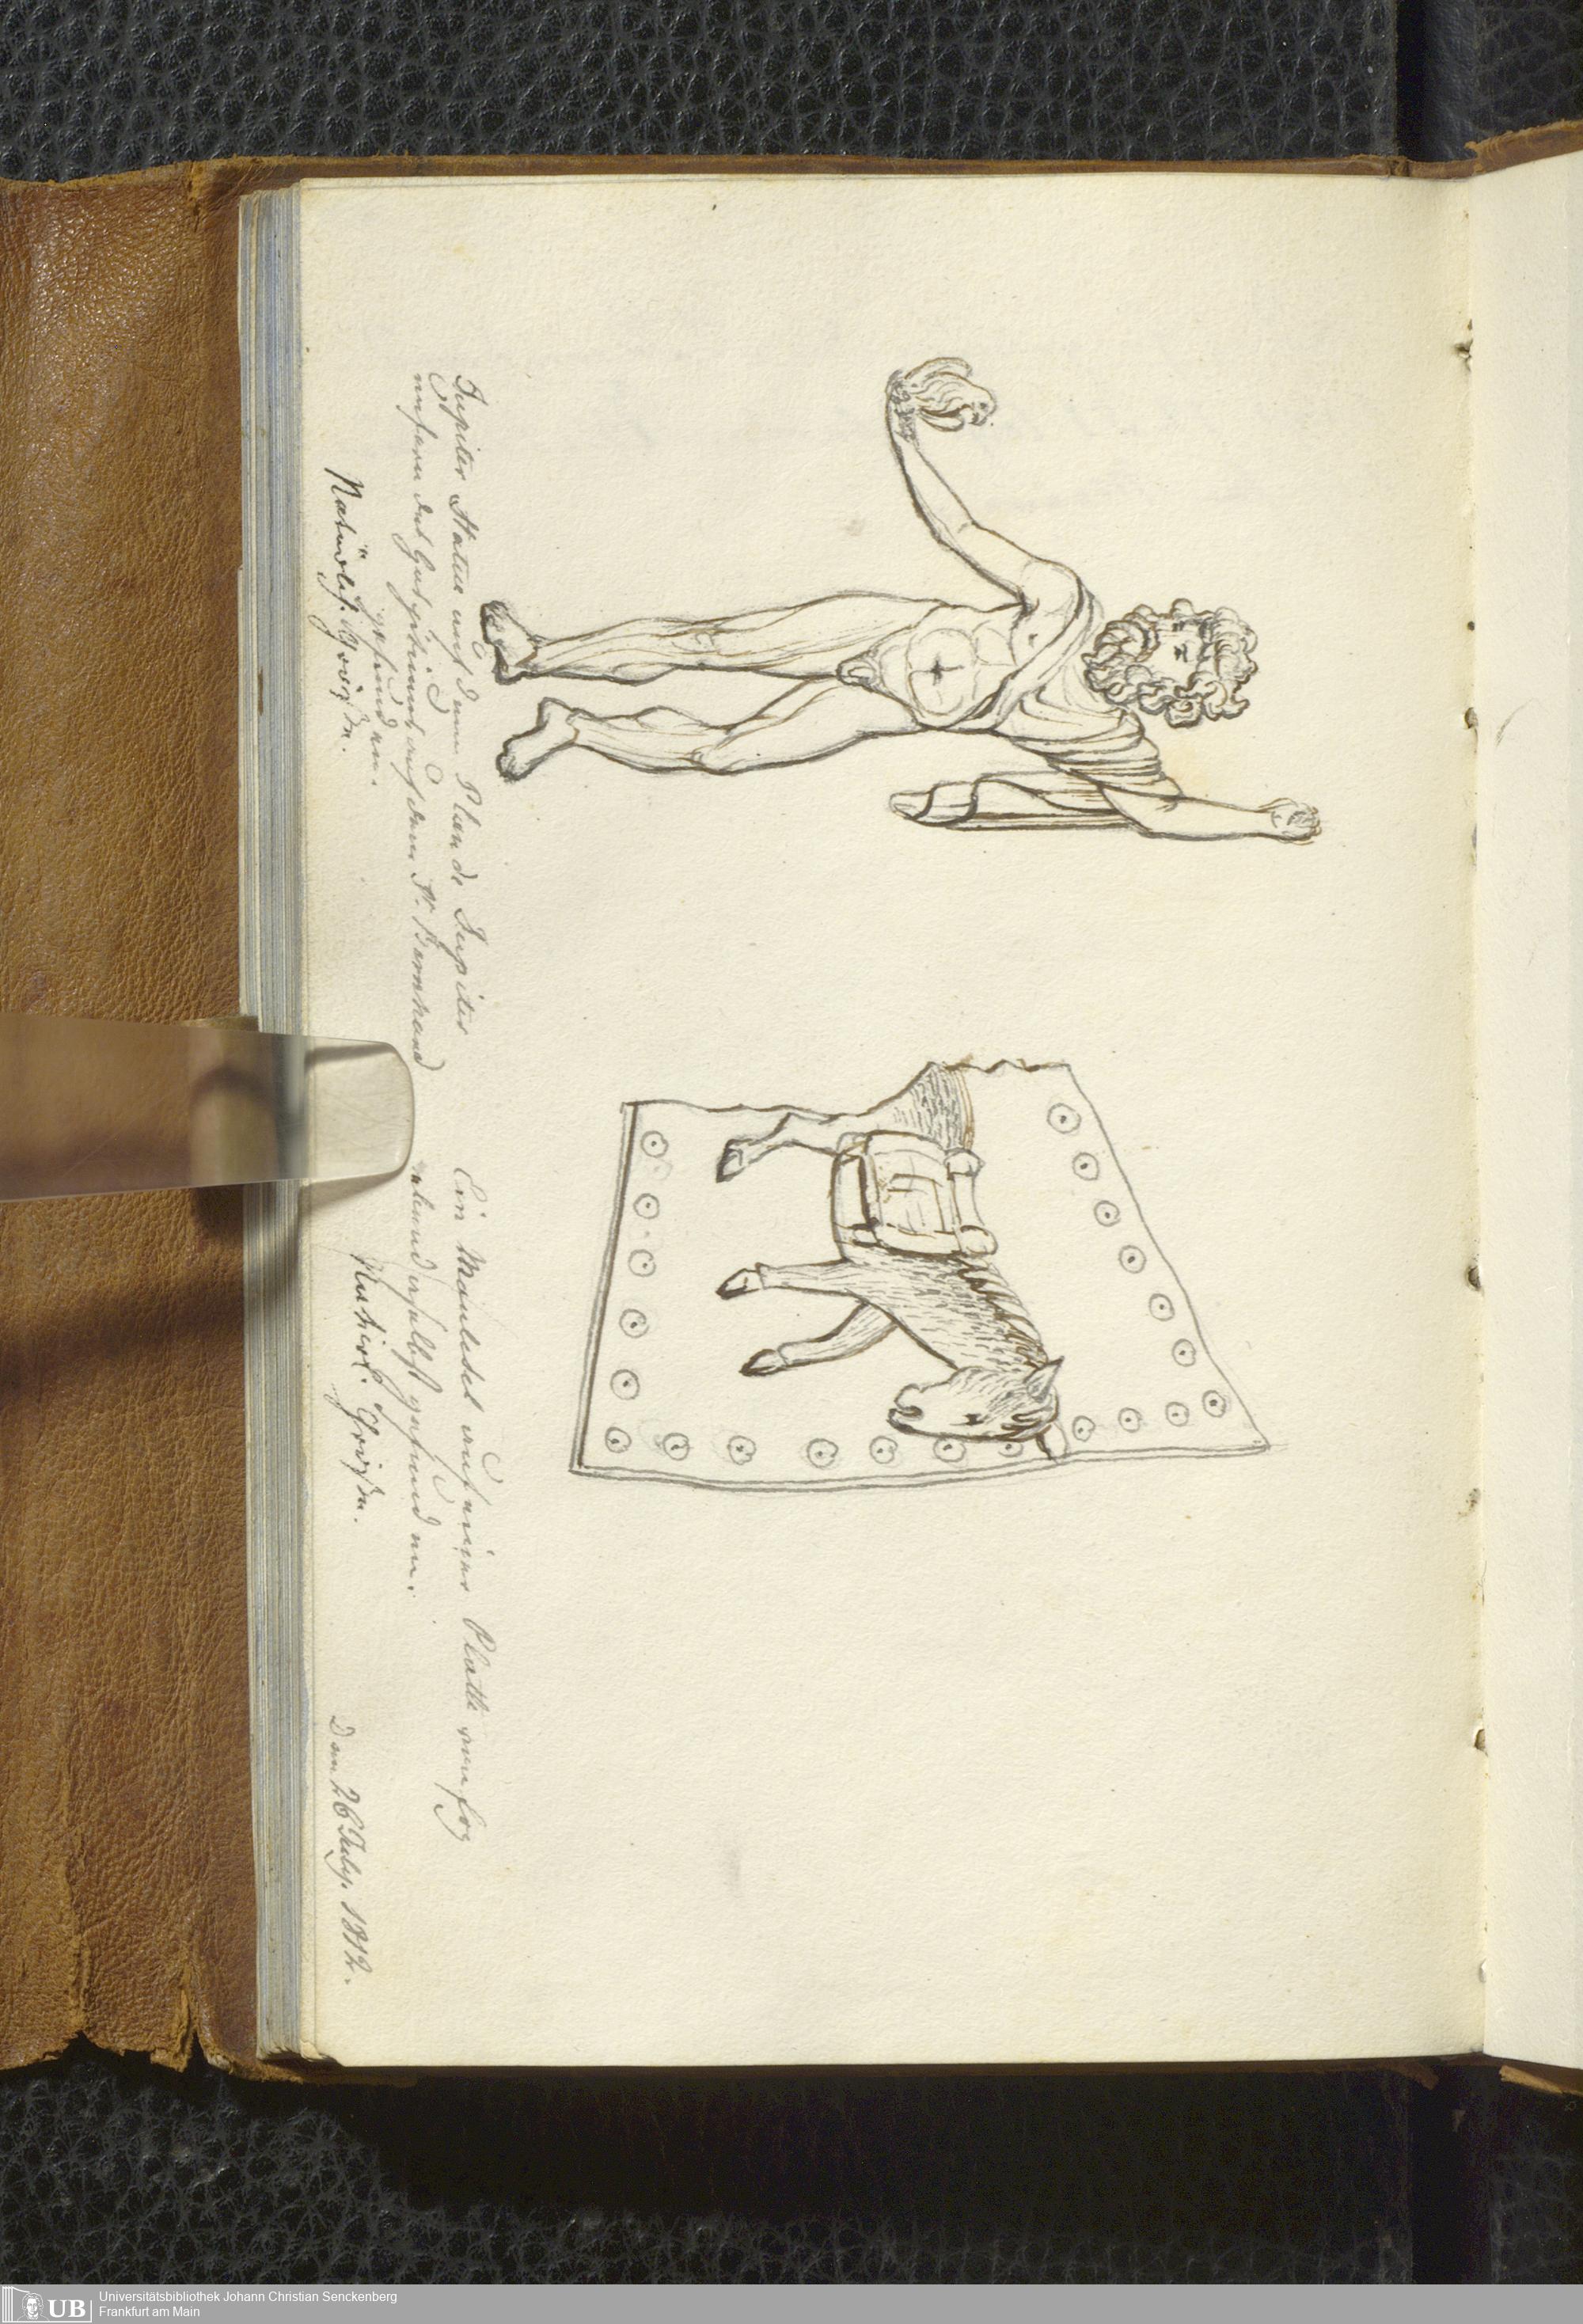 Jupiter Statue auf dem Plan de Jupiter
unfern des Hospitiums auf dem St. Bernhard
gefunden.
Natürlich. Größe.
Ein Maulesel auf einer Platte
daselbst gefunden.
Natürl. Größe.
Den 26 July. 1812.
Universitätsbibliothek Johann Christian Senckenberg
Frankfurt am Main
UB